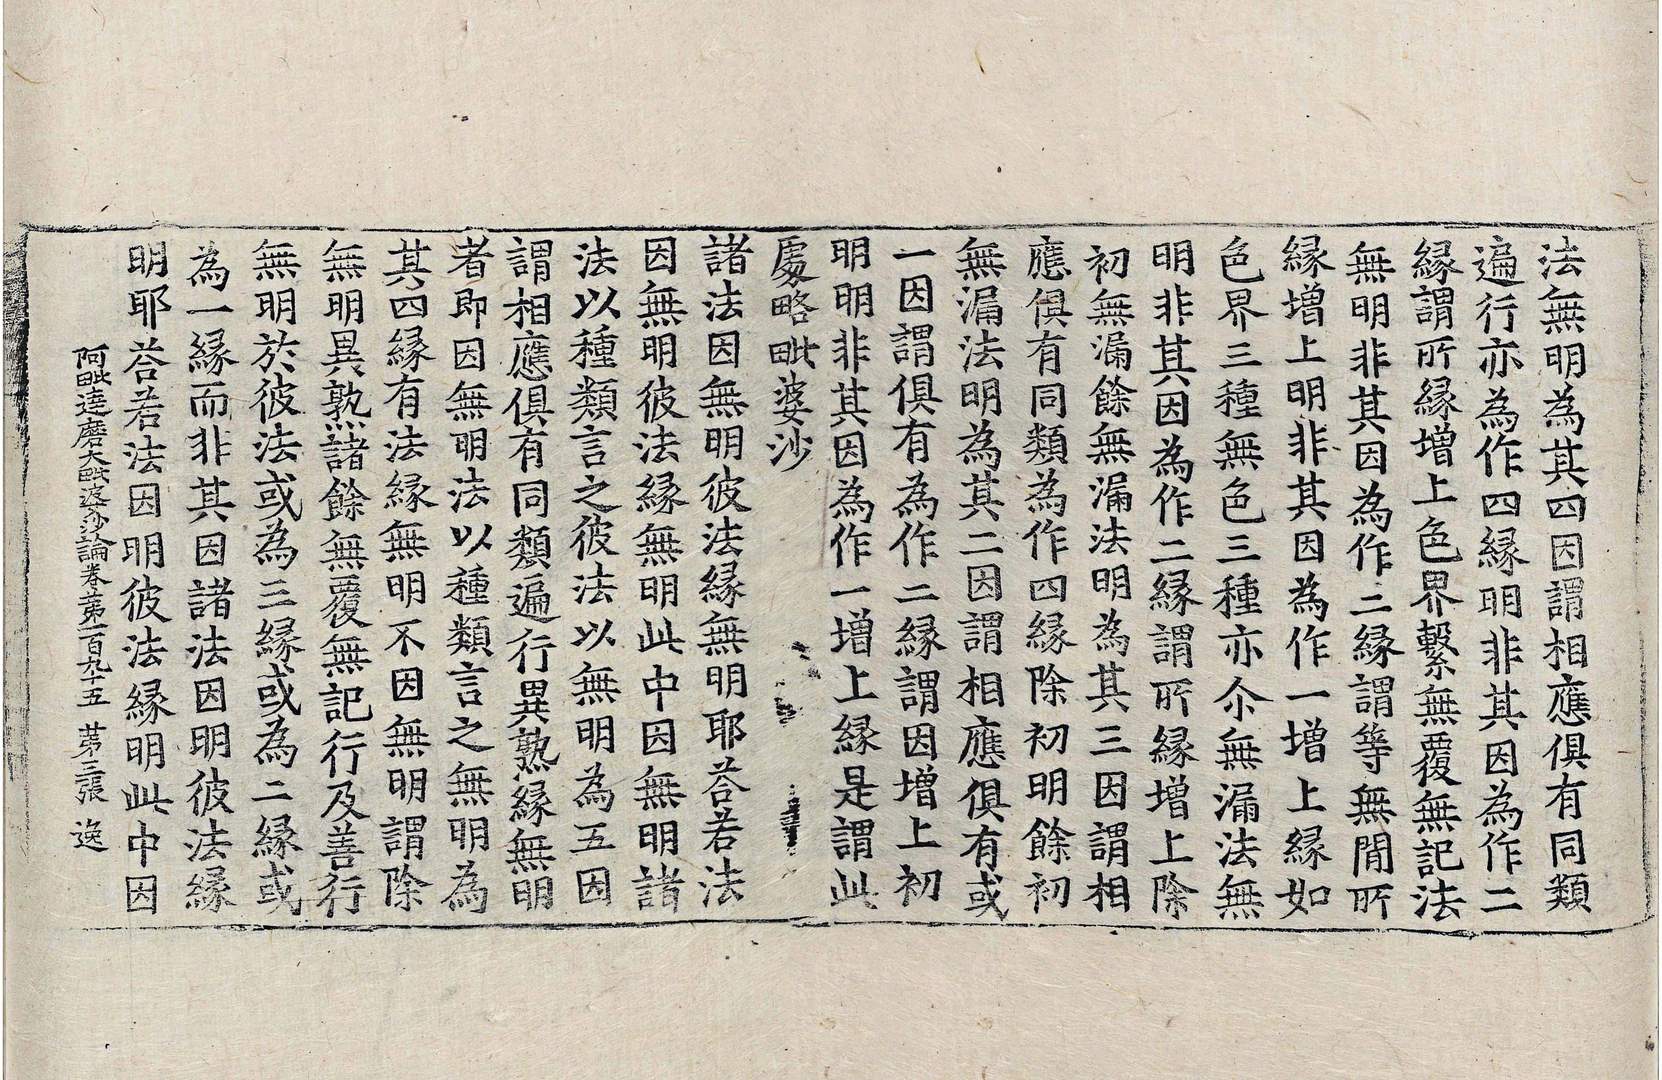 法無明為其四因謂相應俱有同類
遍行亦為作四縁明非其因為作二
縁謂所縁增上色界繫無覆無記法
無明非其因為作三縁謂等無間所
縁增上明非其因為作一增上縁如
色界三種無色三種亦尒無漏法無
明非其因為作二縁謂所縁增上除
初無漏餘無漏法明為其三因謂相
應俱有同類為作四縁除初明餘初
無漏法明為其二因謂相應俱有或
一因謂俱有為作二縁謂因增上初
明明非其因為作一增上縁是謂此
處略毗婆沙
諸法因無明彼法縁無明耶荅若法
因無明彼法縁無明此中因無明諸
法以種類言之彼法以無明為五因
謂相應俱有同類遍行異熟縁無明
者即因無明法以種類言之無明為
其四縁有法縁無明不因無明謂除
無明異熟諸餘無覆無記行及善行
無明於彼法或為三縁或為二縁或
為一縁而非其因諸法因明彼法縁
明耶荅若法因明彼法縁明此中因
阿毗達磨大毗婆沙論卷第一百九十五 第三張 逸